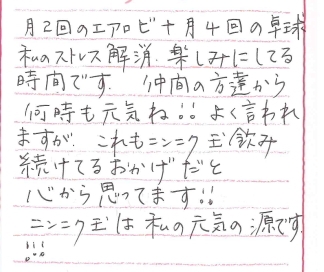 月2回のエアロビ十月4回の卓球
私のストレス解消.楽しみにしてる
時間です. 仲間の方達から
何時も元気ね!! よく言われ
ますが. これもニンニク玉飲み
続けてるおかげだと
心から思ってます!!
ニンニク玉は私の元気の源です.
!!!